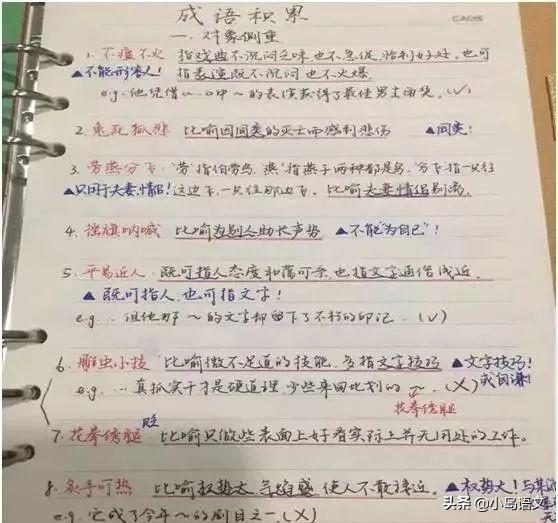 成语积累
CACHE
一. 对象侧重
1. 不瘟不火 指戏曲不沉闷乏味也不急促, 恰到好处。也可
▲不能形容人! 指表演既不沉闷也不火爆。
e.g. 他凭借《…》中~的表演获得了最佳男主角奖。(√)
2. 兔死狐悲 比喻因同类的灭亡而感到悲伤 ▲同类!
3. 劳燕分飞 "劳"指伯劳鸟, "燕"指燕子两种都是鸟, "分飞"指一只往
▲只用于夫妻, 情侣! 这边飞, 一只往那边飞。比喻夫妻情侣别离。
4. 摇旗呐喊 比喻为别人助长声势 ▲不能"为自己"!
5. 平易近人 既可指人态度和蔼可亲, 也指文字通俗浅近。
▲既可指人, 也可指文字!
e.g. … 但他那~的文字却留下了不朽的印记。(√)
6. 雕虫小技 比喻微不足道的技能, 多指文字技巧 ▲文字技巧! 或自谦!
e.g. … 真抓实干才是硬道理, 少些来回比划的~。(×)
花拳绣腿
7. 花拳绣腿 比喻只做些表面上好看实际上并无用处的工作。
贬
8. 炙手可热 比喻权势大, 气焰盛, 使人不敢接近。 ▲权势大! 与其
e.g. 它成了今年~的剧目之一(×)
头条 @小鸟语文